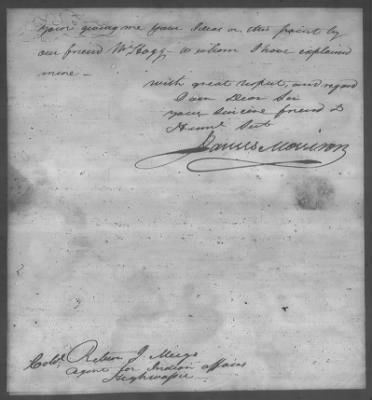 your giving me your Ideas on this point by
our friend Mr Hogg - to whom I have explained
mine -
with great respect, and regard
I am Dear Sir
your sincere friend &
Humle Sert
James Morrison
Colo. Return J. Meigs
agent for Indian affairs
Highwassee